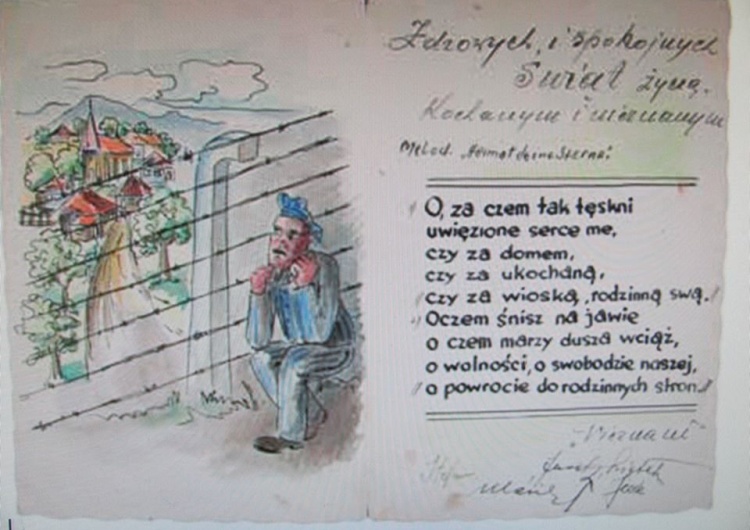 Zdrowych i spokojnych
Świąt życzą.
Kochanym i nieznanym
Melod. "Heimat deine Sterne"
O, za czem tak tęskni
uwięzione serce me,
czy za domem,
czy za ukochaną,
czy za wioską, rodzinną swą.
Oczem śnisz na jawie
o czem marzy dusza wciąż,
o wolności, o swobodzie naszej,
o powrocie do rodzinnych stron.
"Nieznani"
Stefan